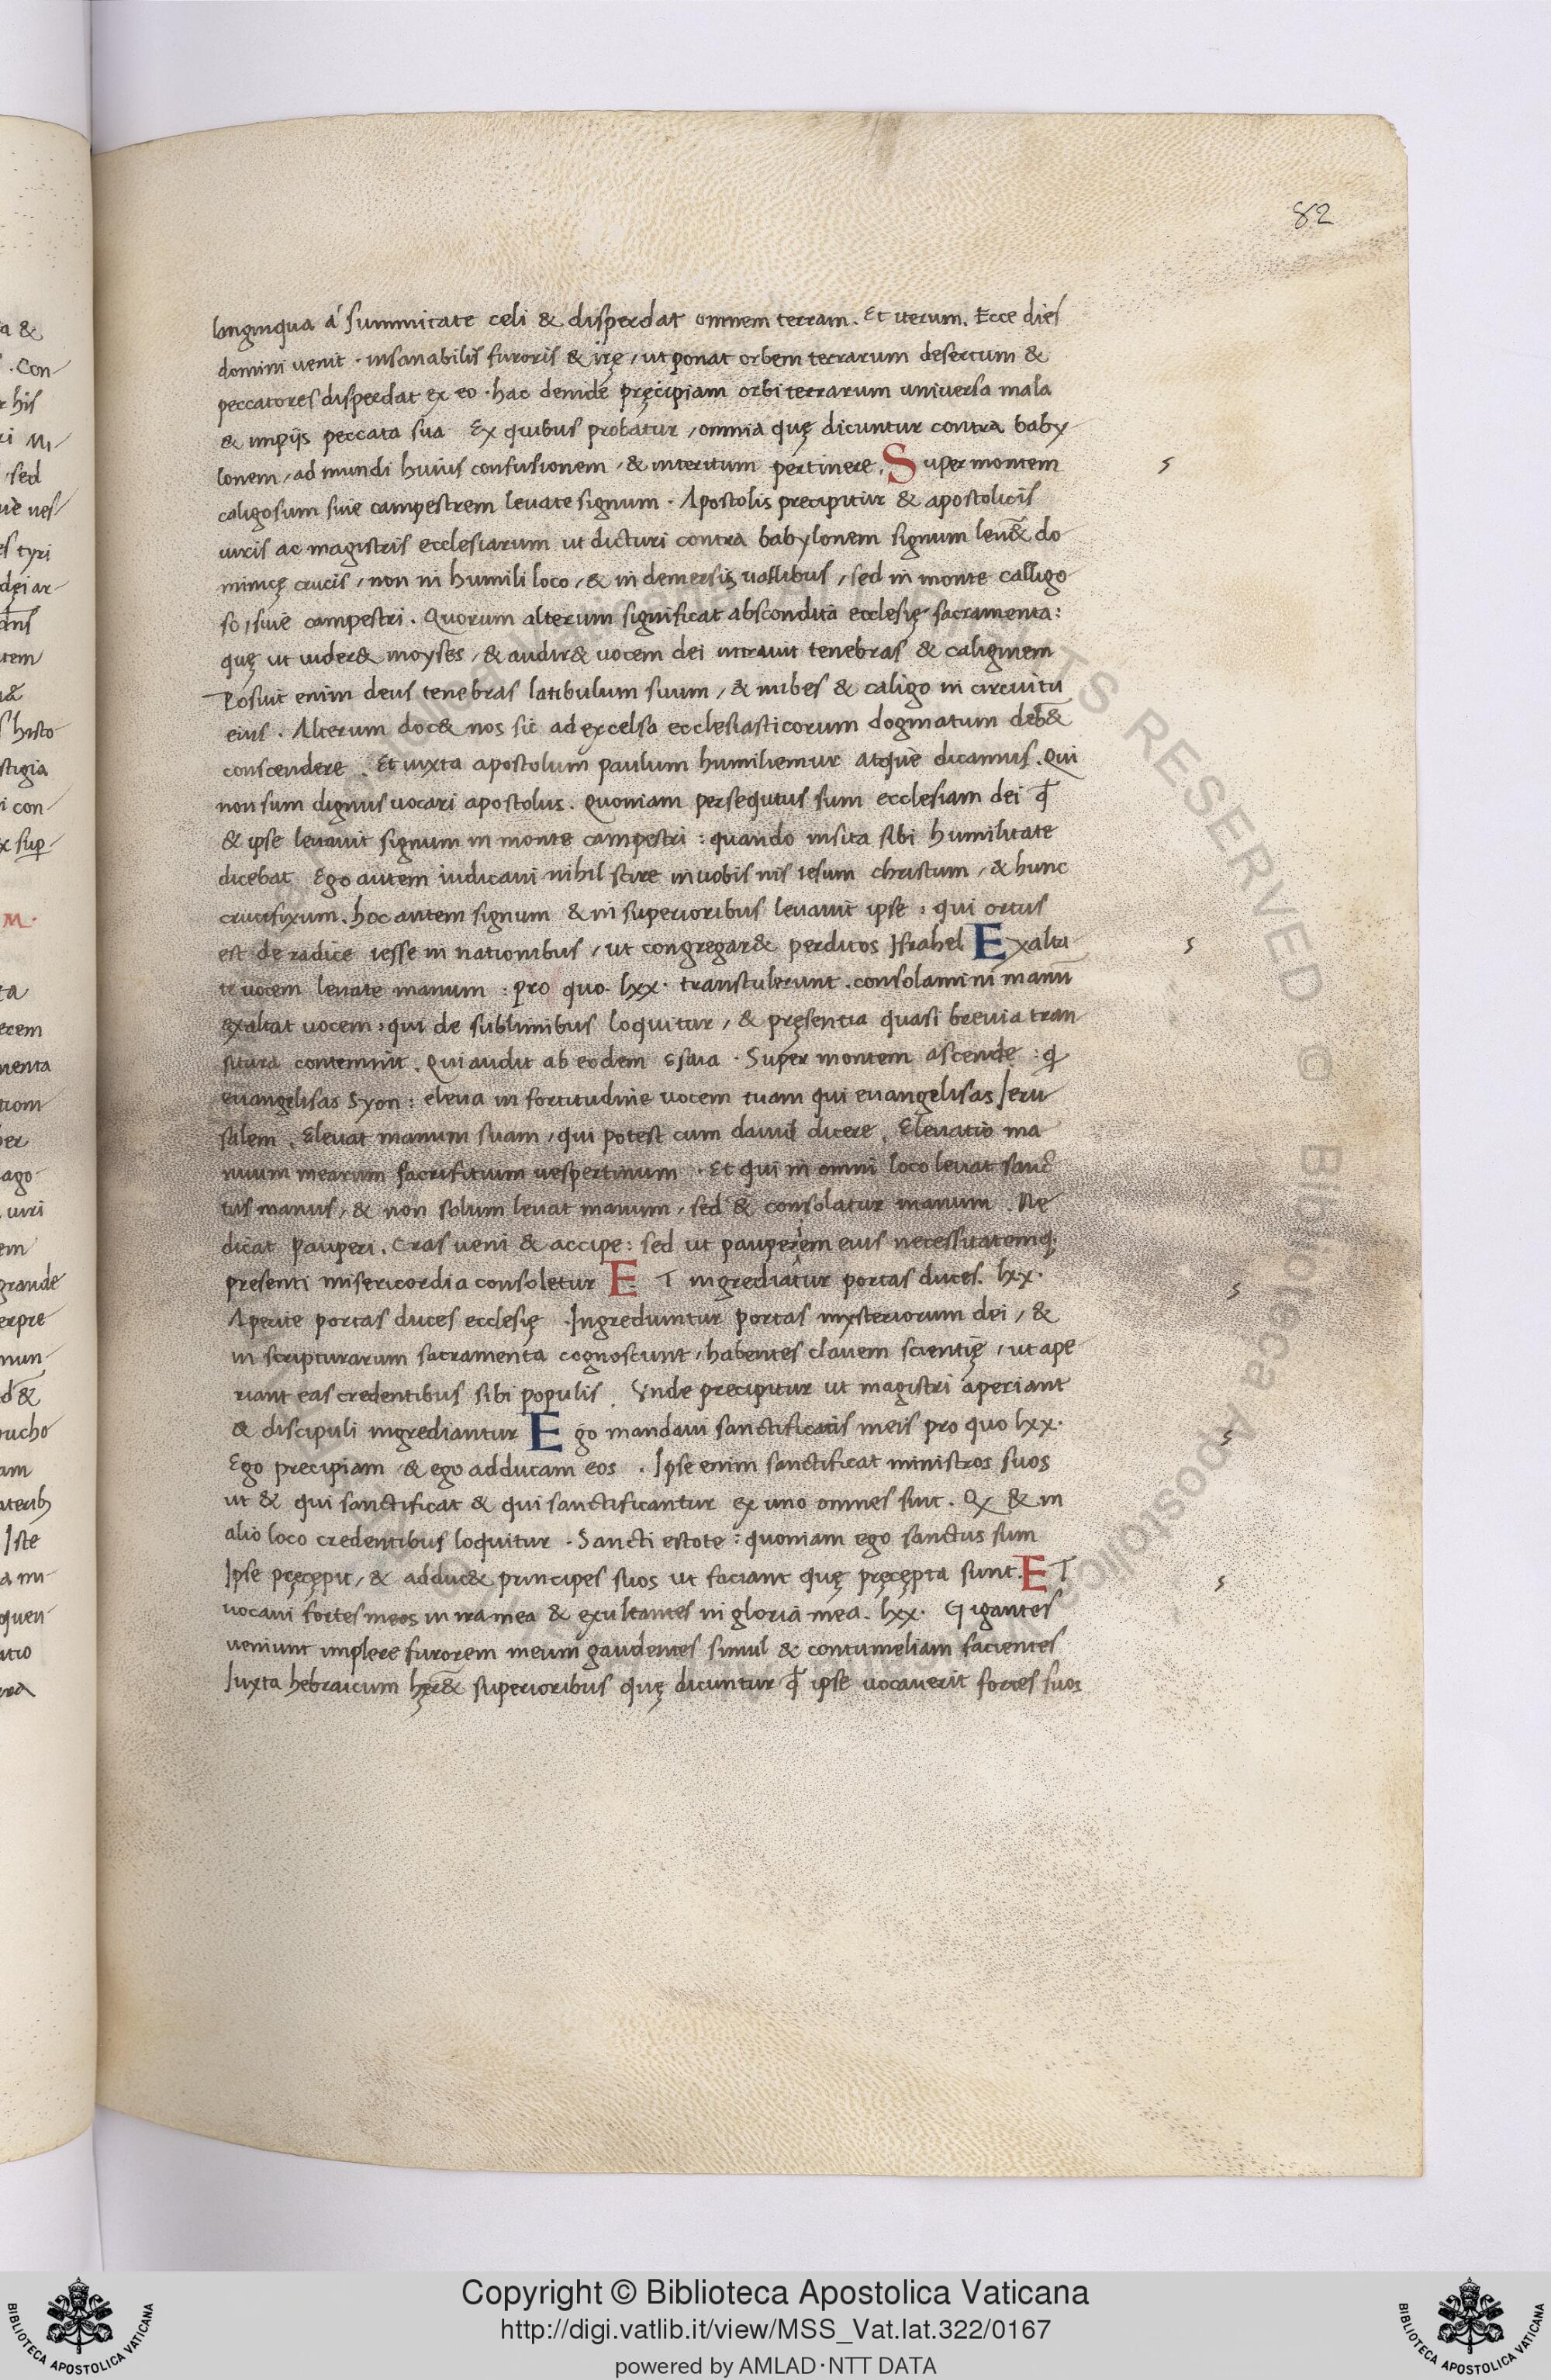 82
longinqua á summitate celi & disperdat omnem terram. Et iterum. Ecce dies
domini uenit · insanabilis furoris & irę / ut ponat orbem terrarum desertum &
peccatores disperdat ex eo · hac deinde pręcipiam orbi terrarum universa mala
& impijs peccata sua Ex quibus probatur / omnia quę dicuntur contra baby-
lonem / ad mundi huius confusionem / & interitum pertinere. Super montem
caligosum siue campestrem leuate signum · Apostolis precipitur & apostolicis
uiris ac magistris ecclesiarum ut dicturi contra babylonem signum leuent do-
minicę crucis / non in humili loco / & in demersis uallibus / sed in monte calligo-
so / siue campestri. Quorum alterum significat abscondita ecclesię sacramenta:
quę ut uider& moyses / & audir& uocem dei intrauit tenebras & caliginem
Posuit enim deus tenebras latibulum suum / & nubes & caligo in circuitu
eius. Alterum doc& nos sic ad excelsa ecclesiasticorum dogmatum deb&
conscendere. Et iuxta apostolum paulum humiliemur atque dicamus. Qui
non sum dignus uocari apostolus. Quoniam persequtus sum ecclesiam dei
& ipse leuauit signum in monte campestri : quando insita sibi humilitate
dicebat Ego autem iudicaui nihil scire in uobis nis iesum christum / & hunc
crucifixum. hoc autem signum & in superioribus leuauit ipse : qui ortus
est de radice iesse in nationibus / ut congregar& perditos Israhel Exalta-
te uocem leuate manum : pro quo lxx. transtulerunt. consolamini manū
exaltat uocem : qui de sublimibus loquitur / & pręsentia quasi brevia tran
situra contemnit. Qui audit ab eodem Esaia · Super montem ascende : q
euangelisas Syon : eleua in fortitudine uocem tuam qui euangelisas Jeru
salem. Eleuat manum suam / qui potest cum dauid dicere. Eleuatio ma
nuum mearum sacrifitium uespertinum · Et qui in omni loco leuat sanc
tas manus / & non solum leuat manum / sed & consolatur manum. Ne
dicat pauperi. Cras ueni & accipe : sed ut pauperem eius necessitatemq;
presenti misericordia consoletur ET ingrediatur portas duces. lxx.
Aperite portas duces ecclesię · Ingrediuntur portas mysteriorum dei / &
in scripturarum sacramenta cognoscunt / habentes clauem scientię / ut ape
riant eas credentibus sibi populis. Vnde precipitur ut magistri aperiant
& discipuli ingrediantur Ego mandaui sanctificatis meis pro quo lxx.
Ego precipiam & ego adducam eos. Ipse enim sanctificat ministros suos
ut & qui sanctificat & qui sanctificantur ex uno omnes sint. & in
alio loco credentibus loquitur · Sancti estote : quoniam ego sanctus sum
Ipse pręcępit / & adduc& principes suos ut faciant quę pręcępta sunt. ET
uocaui fortes meos in ira mea & exultantes in gloria mea. lxx. Gigantes
ueniunt implere furorem meum gaudentes simul & contumeliam facientes
Juxta hebraicum superioribus quę dicuntur ipse uocauerit fortes suos
Copyright © Biblioteca Apostolica Vaticana
http://digi.vatlib.it/view/MSS_Vat.lat.322/0167
powered by AMLAD·NTT DATA